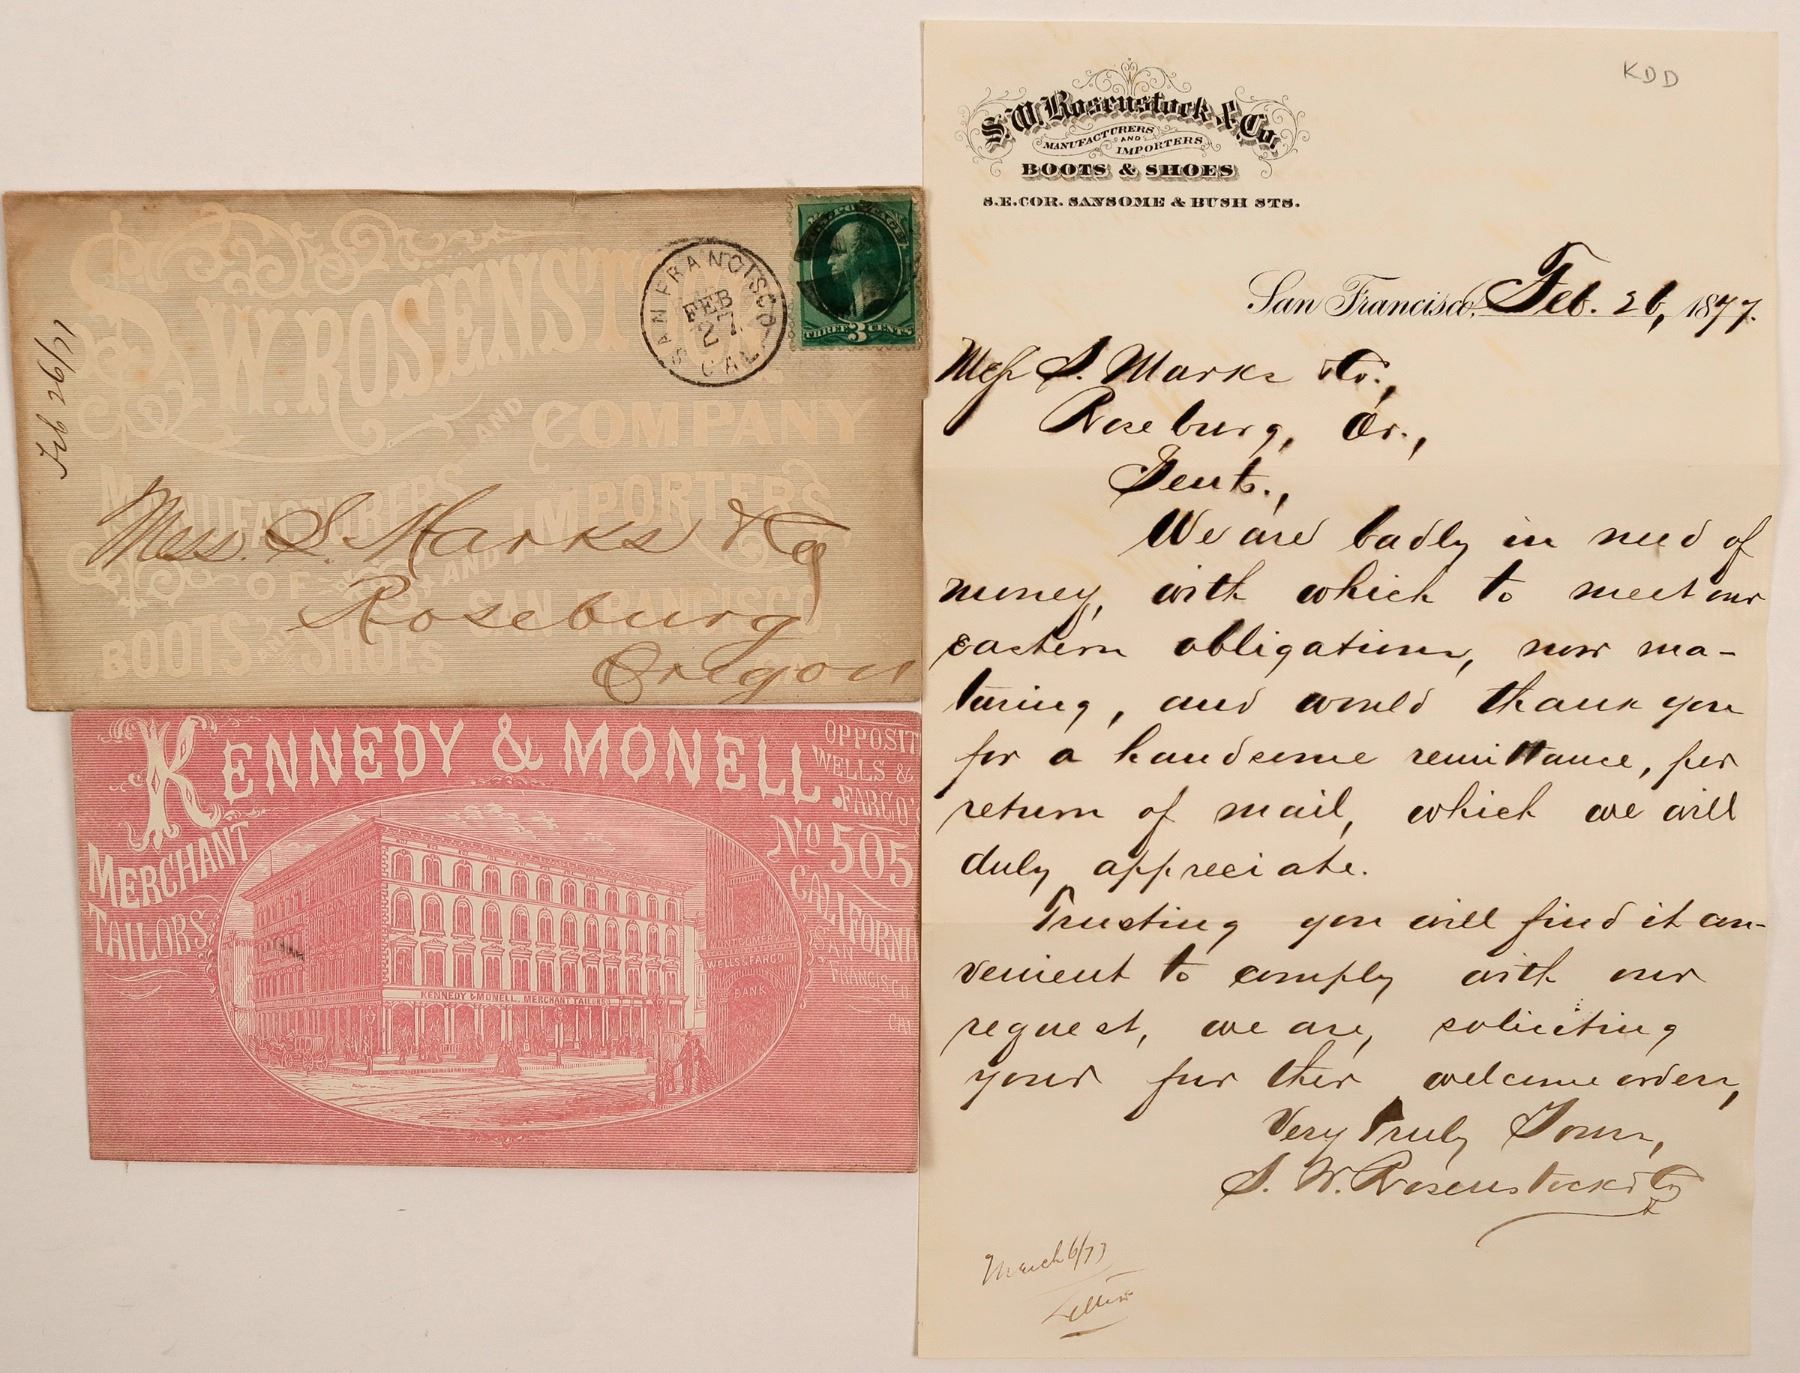 S. W. ROSENST
AND COMPANY
MANUFACTURERS AND IMPORTERS
OF
BOOTS & SHOES
SAN FRANCISCO,
SAN FRANCISCO
FEB
27
CAL
THREE 3 CENTS
Feb 26/77
Mess. S. Marks & Co
Roseburg
Oregon
KENNEDY & MONELL
MERCHANT
TAILORS
OPPOSIT
WELLS &
FARGO'S
No 505
CALIFORNI
SAN
FRANCISCO
CAL
KENNEDY & MONELL, MERCHANT TAILORS
WELLS FARGO
BANK
KDD
S. W. Rosenstock & Co.
MANUFACTURERS
AND
IMPORTERS
BOOTS & SHOES
S.E.COR. SANSOME & BUSH STS.
San Francisco, Feb. 26, 1877.
Mess S. Marks & Co.,
Roseburg, Or.,
Gents.,
We are badly in need of
money, with which to meet our
eastern obligations, now ma-
turing, and would thank you
for a handsome remittance, per
return of mail, which we will
duly appreciate.
Trusting you will find it con-
venient to comply with our
request, we are, soliciting
your further welcome orders,
Very Truly Yours,
S. W. Rosenstock & Co
March 6/77
Letter